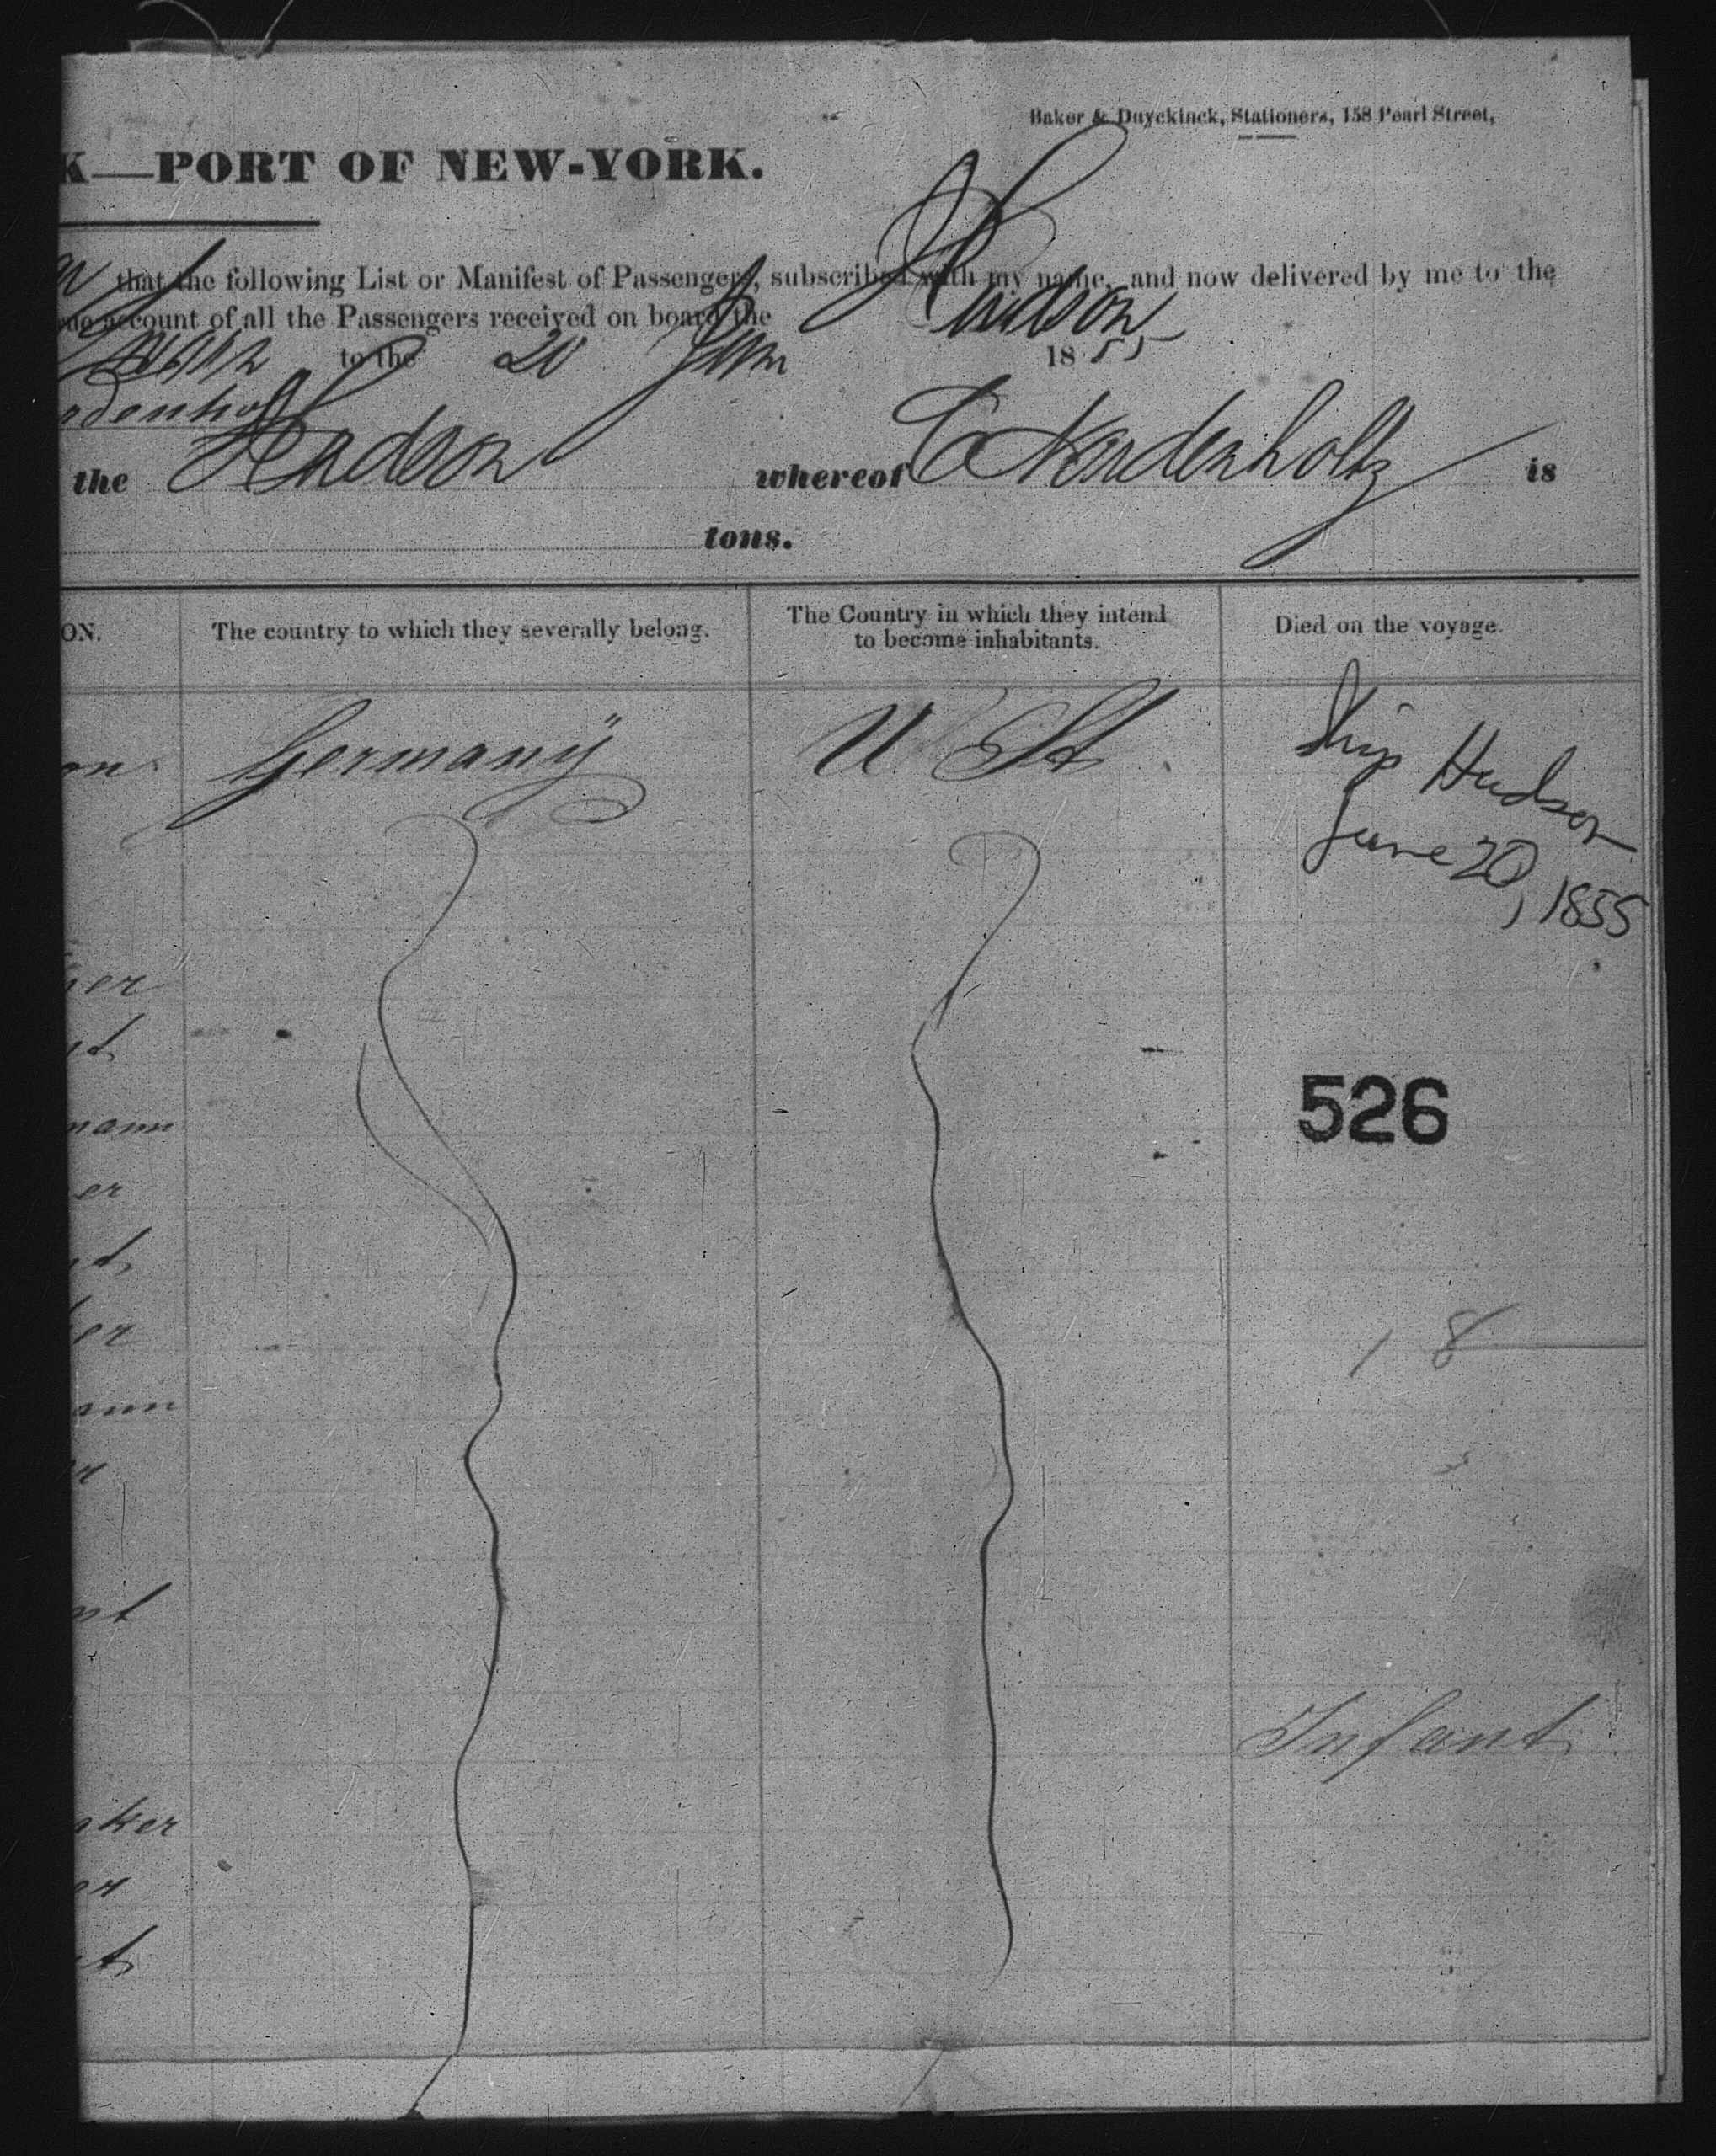 Baker & Duyckinck, Stationers, 158 Pearl Street,
K—PORT OF NEW-YORK.
that the following List or Manifest of Passengers, subscribed with my name, and now delivered by me to the
account of all the Passengers received on board the Hudson
to the 20 June 1855
the Hudson whereof C Nordenholtz is
tons.
ON.
The country to which they severally belong.
The Country in which they intend
to become inhabitants.
Died on the voyage.
on
Germany
U St
Ship Hudson
June 20, 1855
er
mann
526
er
er
18
ann
Infant
aker
er